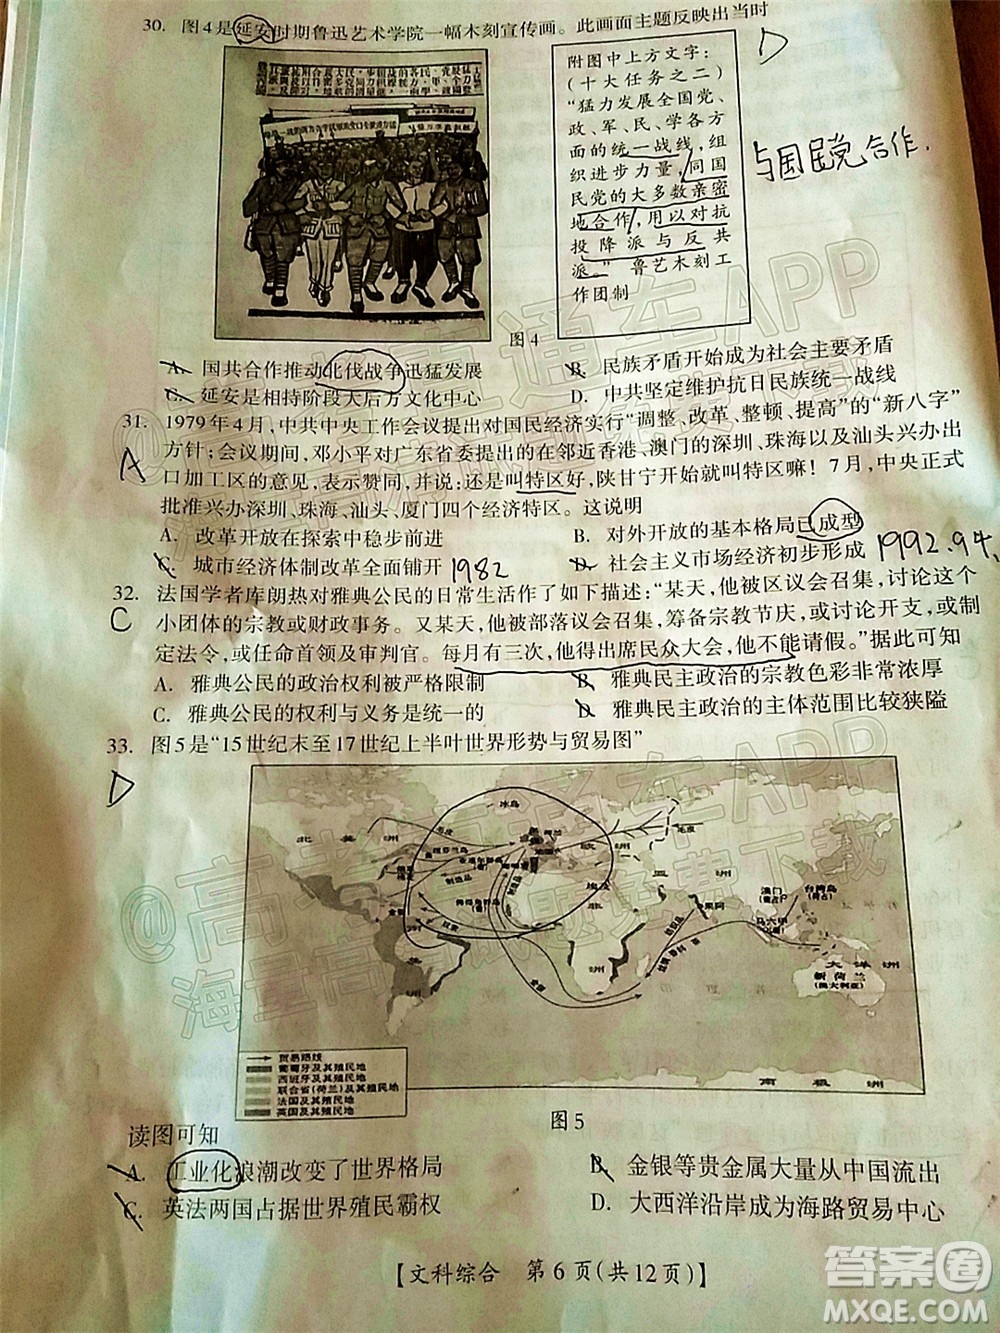 30. 图4是延安时期鲁迅艺术学院一幅木刻宣传画。此画面主题反映出当时
D
附图中上方文字：
(十大任务之二)
“猛力发展全国党、
政、军、民、学各方
面的统一战线，组
织进步力量，同国
民党的大多数亲密
地合作，用以对抗
投降派与反共
派。” 鲁艺木刻工
作团制
与国民党合作.
图4
A. 国共合作推动北伐战争迅猛发展
B. 民族矛盾开始成为社会主要矛盾
C. 延安是相持阶段大后方文化中心
D. 中共坚定维护抗日民族统一战线
31. 1979年4月，中共中央工作会议提出对国民经济实行“调整、改革、整顿、提高”的“新八字”
方针；会议期间，邓小平对广东省委提出的在邻近香港、澳门的深圳、珠海以及汕头兴办出
A
口加工区的意见，表示赞同，并说：还是叫特区好，陕甘宁开始就叫特区嘛！7月，中央正式
批准兴办深圳、珠海、汕头、厦门四个经济特区。这说明
A. 改革开放在探索中稳步前进
B. 对外开放的基本格局已成型
C. 城市经济体制改革全面铺开 1982
D. 社会主义市场经济初步形成 1992.94.
32. 法国学者库朗热对雅典公民的日常生活作了如下描述：“某天，他被区议会召集，讨论这个
C
小团体的宗教或财政事务。又某天，他被部落议会召集，筹备宗教节庆，或讨论开支，或制
定法令，或任命首领及审判官。每月有三次，他得出席民众大会，他不能请假。”据此可知
A. 雅典公民的政治权利被严格限制
B. 雅典民主政治的宗教色彩非常浓厚
C. 雅典公民的权利与义务是统一的
D. 雅典民主政治的主体范围比较狭隘
33. 图5是“15世纪末至17世纪上半叶世界形势与贸易图”
D
冰岛
北 美 洲
毛皮
欧 洲
亚 洲
制造品
埃及
非
洲
果阿
澳门
台湾岛
马六甲
大 洋 洲
新荷兰
(澳大利亚)
南 极 洲
贸易路线
葡萄牙及其殖民地
西班牙及其殖民地
联合省(荷兰)及其殖民地
法国及其殖民地
英国及其殖民地
图5
读图可知
A. 工业化浪潮改变了世界格局
B. 金银等贵金属大量从中国流出
C. 英法两国占据世界殖民霸权
D. 大西洋沿岸成为海路贸易中心
【文科综合 第6页(共12页)】
@高考直通车APP
海量高清试题免费下载
@高考直通车APP
海量高清试题免费下载
答案圈
MXQE.COM